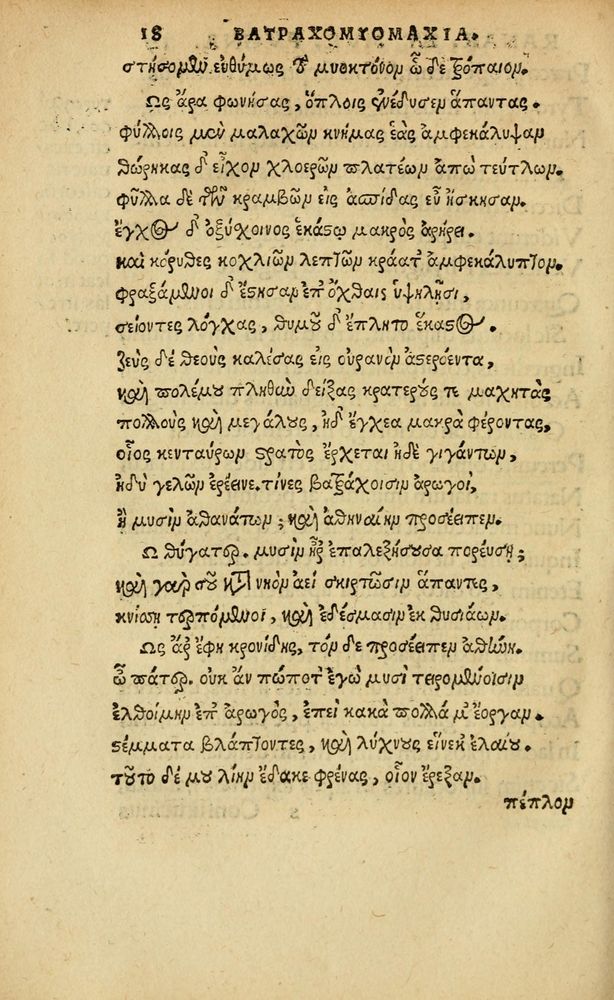 18 ΒΑΤΡΑΧΟΜΥΟΜΑΧΙΑ.
στήσομεν εὐθύμως τὸ μυοκτόνον ὧδε τρόπαιον.
Ως ἄρα φωνήσας, ὅπλοις ἐνέδυσεν ἅπαντας.
φύλλοις μὲν μαλαχῶν κνήμας ἑὰς ἀμφεκάλυψαν
θώρηκας δ' εἶχον χλοερῶν πλατέων ἀπὸ τεύτλων.
φῦλλα δὲ τῶν κραμβῶν εἰς ἀσπίδας εὖ ἤσκησαν.
ἔγχος δ' ὀξύχοινος ἑκάστῳ μακρὸς ἀρήρει.
καὶ κόρυθες κοχλιῶν λεπτῶν κράατ' ἀμφεκάλυπτον.
φραξάμενοι δ' ἔστησαν ἐπ' ὄχθαις ὑψηλῇσι,
σείοντες λόγχας, θυμοῦ δ' ἔπλητο ἕκαστος.
Ζεὺς δὲ θεοὺς καλέσας εἰς οὐρανὸν ἀστερόεντα,
καὶ πολέμου πληθὺν δείξας κρατερούς τε μαχητὰς
πολλοὺς καὶ μεγάλους, ἠδ' ἔγχεα μακρὰ φέροντας,
οἷος κενταύρων στρατὸς ἔρχεται ἠδὲ γιγάντων,
ἡδὺ γελῶν ἐρέεινε. τίνες βατράχοισιν ἀρωγοὶ,
ἢ μυσὶν ἀθανάτων; καὶ ἀθηναίην προσέειπεν.
Ω θύγατερ. μυσὶν ἦρ' ἐπαλεξήσουσα πορεύσῃ;
καὶ γὰρ σοῦ κατὰ νηὸν ἀεὶ σκιρτῶσιν ἅπαντες,
κνίσσῃ τερπόμενοι, καὶ ἐδέσμασιν ἐκ θυσιάων.
Ως ἄρ' ἔφη κρονίδης, τὸν δὲ προσέειπεν ἀθήνη.
ὦ πάτερ. οὐκ ἄν πώποτ' ἐγὼ μυσὶ τειρομένοισιν
ἐλθοίμην ἐπ' ἀρωγὸς, ἐπεὶ κακὰ πολλά μ' ἔοργαν.
στέμματα βλάπτοντες, καὶ λύχνους εἵνεκ' ἐλαίου.
τοῦτο δέ μου λίην ἔδακε φρένας, οἷον ἔρεξαν.
πέπλον